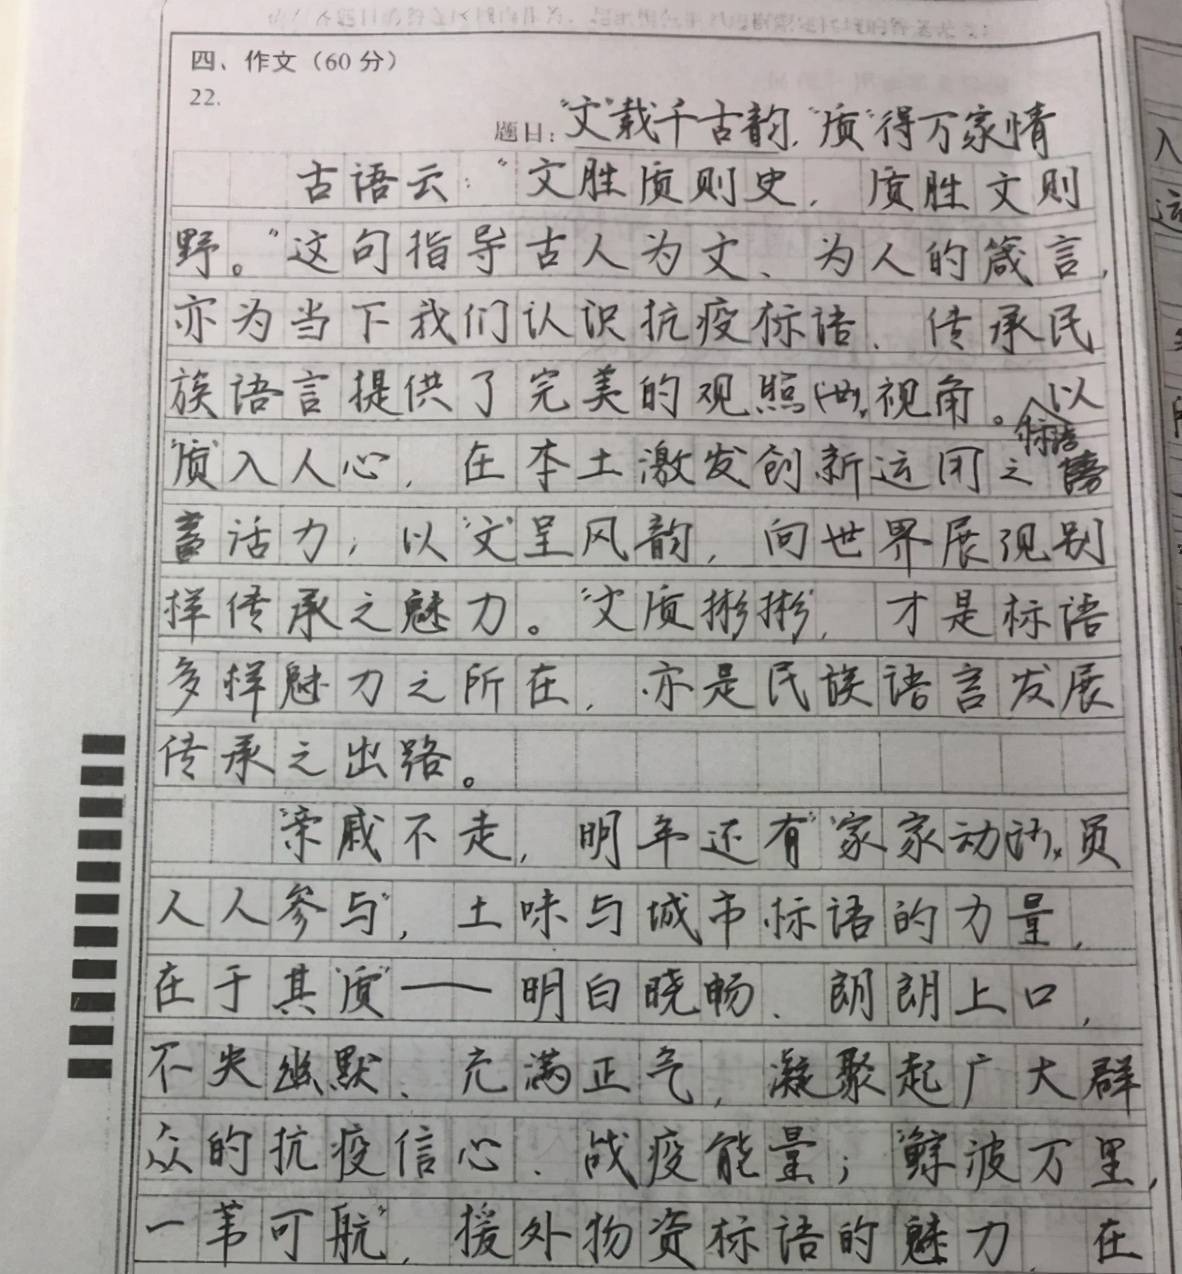 四、作文（60分）
22.
题目：“文”载千古韵，“质”得万家情
古语云：“文胜质则史，质胜文则
野。”这句指导古人为文、为人的箴言，
亦为当下我们认识抗疫标语、传承民
族语言提供了完美的观照视角。以
“质”入人心，在本土激发创新运用之标语
活力；以“文”呈风韵，向世界展现别
样传承之魅力。“文质彬彬”，才是标语
多样魅力之所在，亦是民族语言发展
传承之出路。
“亲戚不走，明年还有”“家家动员
人人参与”，土味与城市标语的力量，
在于其“质”——明白晓畅、朗朗上口，
不失幽默、充满正气，凝聚起广大群
众的抗疫信心、战疫能量；“鲸波万里，
一苇可航”，援外物资标语的魅力，在
入
运